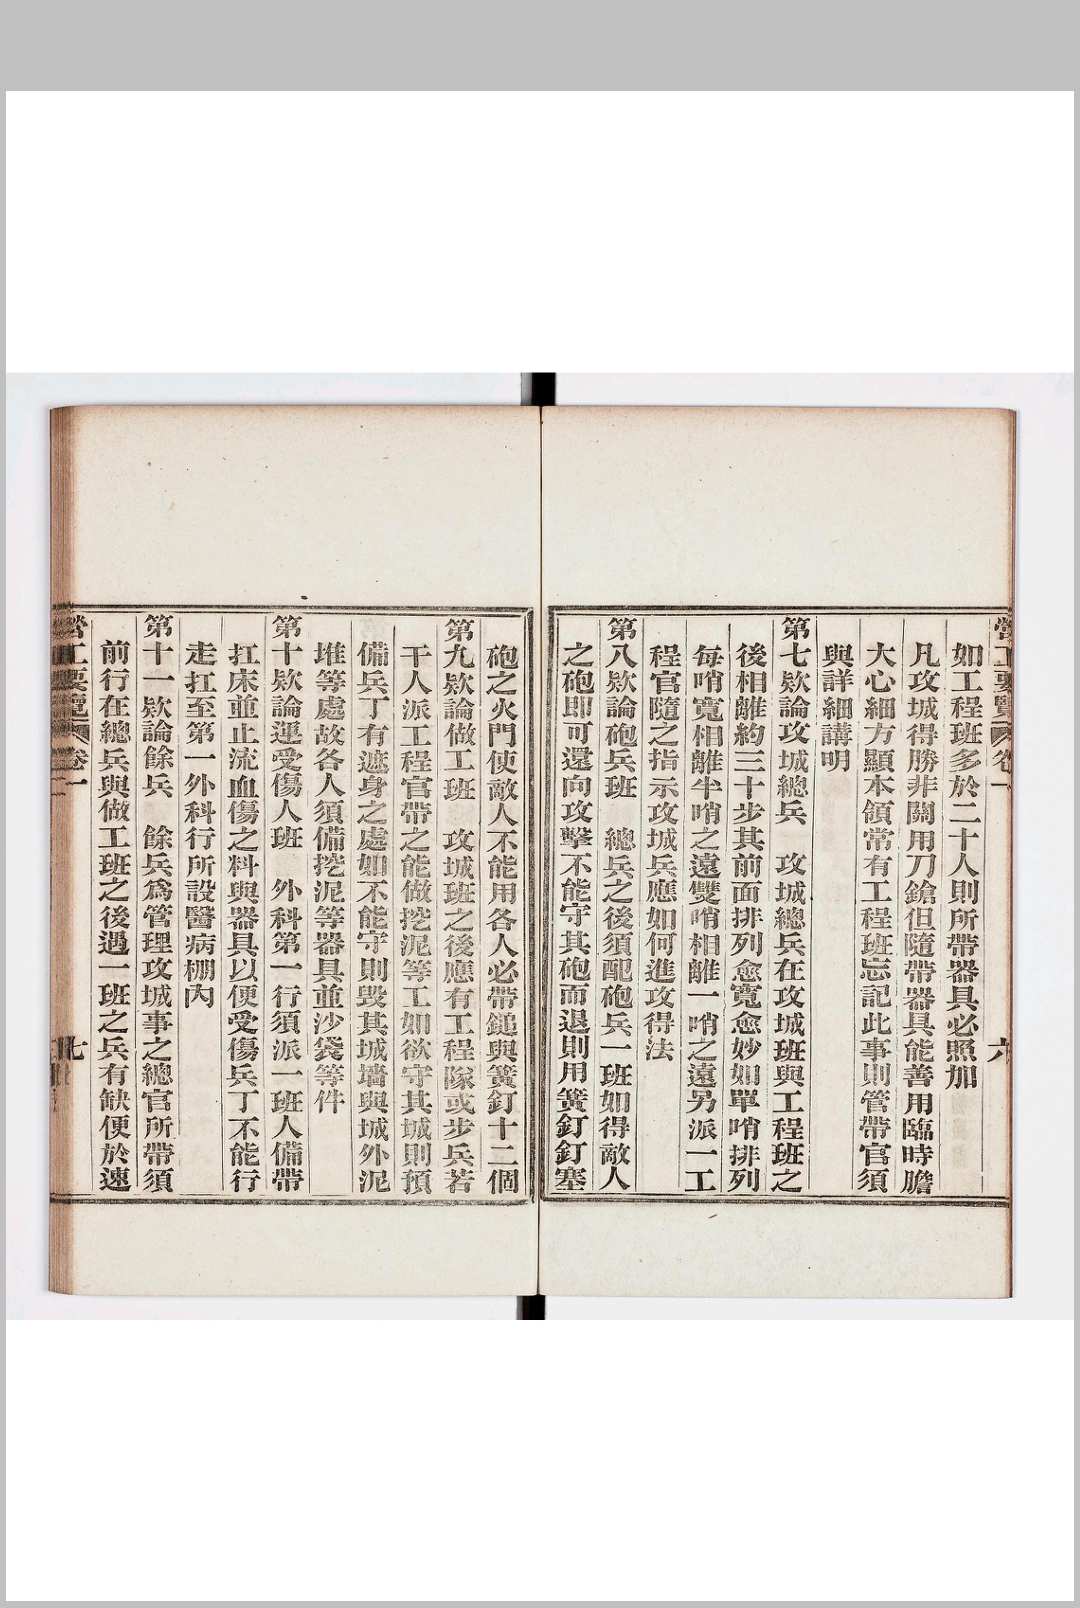 營工要覽 卷一 六
如工程班多於二十人則所帶器具必照加
凡攻城得勝非關用刀鎗但隨帶器具能善用臨時膽
大心細方顯本領常有工程班忘記此事則管帶官須
與詳細講明
第七欵論攻城總兵 攻城總兵在攻城班與工程班之
後相離約三十步其前面排列愈寬愈妙如單哨排列
每哨寬相離半哨之遠雙哨相離一哨之遠另派一工
程官隨之指示攻城兵應如何進攻得法
第八欵論砲兵班 總兵之後須配砲兵一班如得敵人
之砲即可還向攻擊不能守其砲而退則用簧釘釘塞
砲之火門使敵人不能用各人必帶鎚與簧釘十二個
第九欵論做工班 攻城班之後應有工程隊或步兵若
干人派工程官帶之能做挖泥等工如欲守其城則預
備兵丁有遮身之處如不能守則毀其城墻與城外泥
堆等處故各人須備挖泥等器具並沙袋等件
第十欵論運受傷人班 外科第一行須派一班人備帶
扛床並止流血傷之料與器具以便受傷兵丁不能行
走扛至第一外科行所設醫病棚內
第十一欵論餘兵 餘兵爲管理攻城事之總官所帶須
前行在總兵與做工班之後遇一班之兵有缺便於速
營工要覽 卷一 七